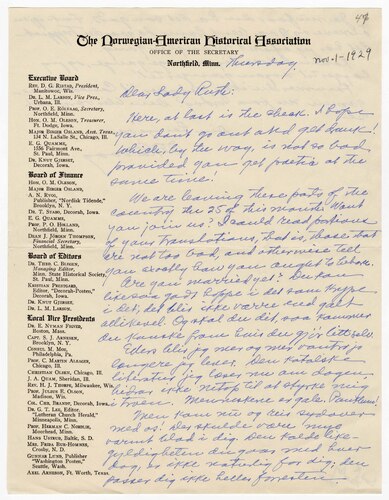 47
The Norwegian-American Historical Association
OFFICE OF THE SECRETARY
Northfield, Minn. Thursday
nov-1-1929
Executive Board
REV. D. G. RISTAD, President,
Manitowoc, Wis.
DR. L. M. LARSON, Vice Pres.,
Urbana, Ill.
PROF. O. E. RÖLVAAG, Secretary,
Northfield, Minn.
HON. O. M. OLESON, Treasurer,
Ft. Dodge, Iowa.
MAJOR BIRGER OSLAND, Asst. Treas.
134 N. LaSalle St., Chicago, Ill.
E. G. QUAMME,
1586 Fairmont Ave.,
St. Paul, Minn.
DR. KNUT GJERSET,
Decorah, Iowa.
Board of Finance
HON. O. M. OLESON,
MAJOR BIRGER OSLAND,
A. N. RYGG,
Publisher, "Nordisk Tidende,"
Brooklyn, N. Y.
DR. T. STABO, Decorah, Iowa.
E. G. QUAMME,
St. Paul, Minn.
PROF. P. O. HOLLAND,
Northfield, Minn.
DEAN J. JÖRGEN THOMPSON,
Financial Secretary,
Northfield, Minn.
Board of Editors
DR. THEO. C. BLEGEN,
Managing Editor,
Minn. State Historical Society,
St. Paul, Minn.
KRISTIAN PRESTGARD,
Editor, "Decorah-Posten,"
Decorah, Iowa.
DR. KNUT GJERSET
DR. L. M. LARSON
Local Vice Presidents
DR. E. NYMAN FIGVED,
Boston, Mass.
CAPT. S. J. ARNESEN,
Brooklyn, N. Y.
CONSUL M. MOE,
Philadelphia, Pa.
PROF. C. MARTIN ALSAGER,
Chicago, Ill.
CHRISTIAN OLSEN, Chicago, Ill.
J. A. QUAM, Sheridan, Ill.
HON. H. J. THORKELSON, Milwaukee, Wis.
PROF. JULIUS E. OLSON,
Madison, Wis.
COL. CHR. BRANDT, Decorah, Iowa.
DR. G. T. LEE, Editor,
"Lutheran Church Herald,"
Minneapolis, Minn.
PROF. HERMAN C. NORDLIE,
Moorhead, Minn.
HANS USTRUD, Baltic, S. D.
MRS. FRIDA BUE-HOMNES,
Crosby, N. D.
GUNNAR LUND, Publisher
"Washington Posten,"
Seattle, Wash.
AXEL ARNESON, Ft. Worth, Texas.
Dear Lady Ruth:
Here, at last is the check. I hope
you don't go out and get drunk!
Which, by the way, is not so bad
provided you get poetic at the
same time.
We are leaving these parts of the
country the 25 of this month. Want
you join us? I could read portions
of your translations, that is, those that
are not too bad, and otherwise tell
you exactly how you ought to behave.
Are you married yet? Du kan
like saa godt hoppe i det som krype
i det, det blir ikke varre end galt
allikevel. Og skal du det, saa kommer
du kanske fram
Ellers blir jeg mig og mer vantro jo
længere jeg lever. Den
jeg læser nu om dagen
hjælper ikke noksagt til at styrke mig
i troen. Menneskene er gale. Punktum!
Men kan nu og reis sydover
med os! Der skulde være mig
varmt blod i dig. Den kolde like-
gyldigheten din gaar med hver
dag, er ikke naturlig for dig; den
passer dig ikke heller forresten.